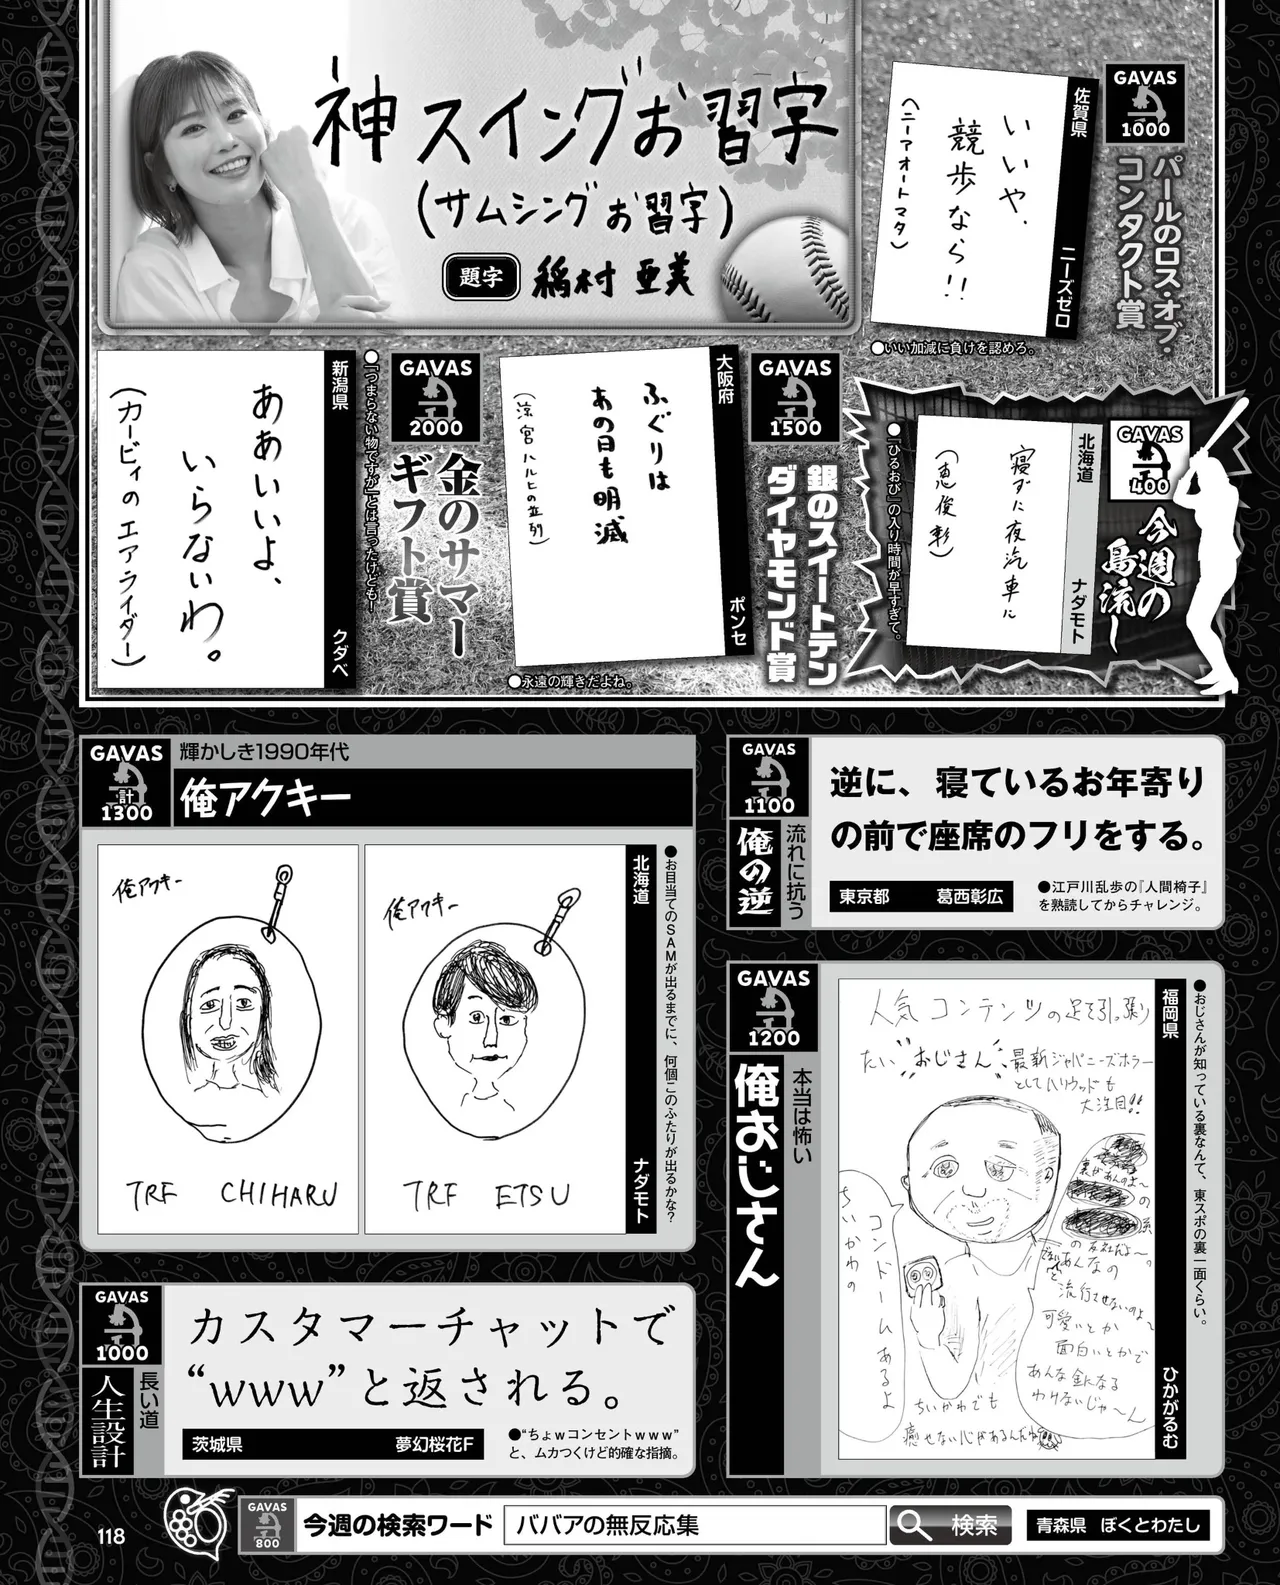 神スイングお習字
(サムシングお習字)
題字 稲村亜美
GAVAS
1000
パールのロス・オブ・
コンタクト賞
佐賀県
ニーズゼロ
いいや、
競歩なら!!
(ヘニーアオートマタ)
●いい加減に負けを認めろ。
GAVAS
400
今週の
島流し
北海道
ナダモト
寝ずに夜汽車に
(恵俊彰)
●「ひるおび」の入り時間が早すぎて。
GAVAS
1500
銀のスイートテン
ダイヤモンド賞
大阪府
ポンセ
ふぐりは
あの日も明滅
(涼宮ハルヒの並列)
●永遠の輝きだよね。
GAVAS
2000
金のサマー
ギフト賞
●「つまらない物ですが」とは言ったけども!
新潟県
クダベ
ああいいよ、
いらないわ。
(カービィのエアライダー)
GAVAS
計
1300
輝かしき1990年代
俺アクキー
●お目当てのSAMが出るまでに、何個このふたりが出るかな?
北海道
ナダモト
俺アクキー
TRF ETSU
俺アクキー
TRF CHIHARU
GAVAS
1100
流れに抗う
俺の逆
逆に、寝ているお年寄り
の前で座席のフリをする。
東京都 葛西彰広
●江戸川乱歩の『人間椅子』
を熟読してからチャレンジ。
GAVAS
1200
本当は怖い
俺おじさん
●おじさんが知っている裏なんて、東スポの裏一面くらい。
福岡県
ひかがるむ
人気コンテンツの足を引っ張り
たい"おじさん"最新ジャパニーズホラー
としてハリウッドも
大注目!!
裏があんのよ〜
の系
の友社だよ〜。
あんなの
流行させないのよ
可愛いとか
面白いとかで
あんな金になる
わけないじゃ〜ん
ちいかわの
コンドームあるよ
ちいかわでも
癒せない心があるんだね
GAVAS
1000
長い道
人生設計
カスタマーチャットで
“www”と返される。
茨城県 夢幻桜花F
●“ちょwコンセントwww”
と、ムカつくけど的確な指摘。
118
GAVAS
800
今週の検索ワード
ババアの無反応集
検索
青森県 ぼくとわたし